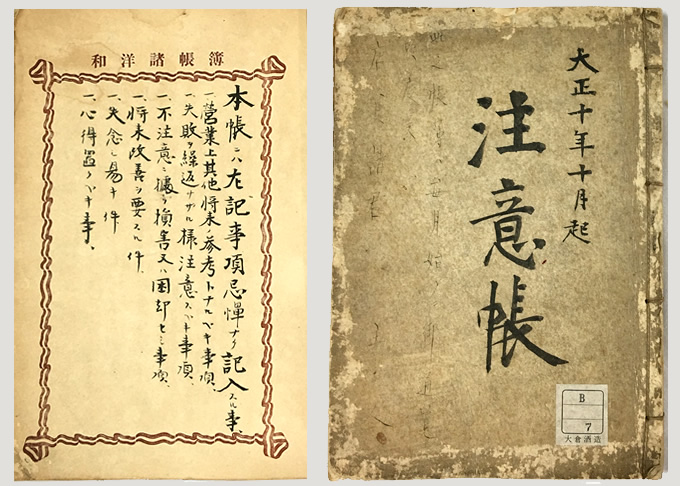 大正十年十月起
注意帳
B
7
大倉酒造
和洋諸帳簿
本帳ニハ左記事項忌憚ナク記入スル事、
一、營業上其他将来ノ参考トナルベキ事項、
一、失敗ヲ繰返サザル様注意スベキ事項、
一、不注意ニ據ル損害又ハ困却セシ事項、
一、将来改善ヲ要スル件、
一、失念シ易キ件
一、心得置クベキ事、